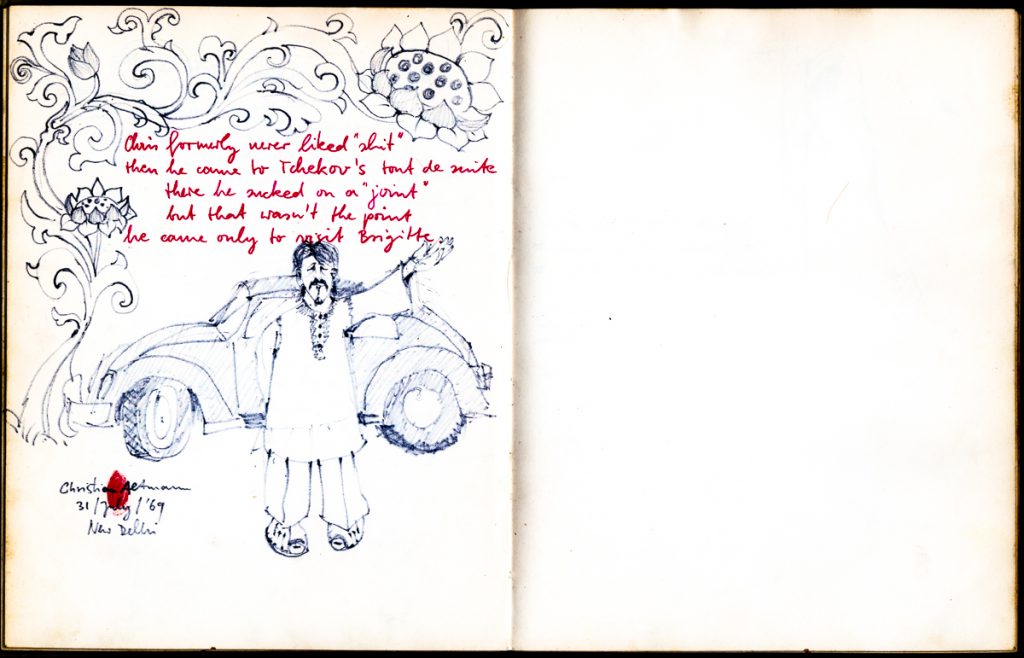 Chris formerly never liked "shit"
then he came to Tchekov's tout de suite
there he sucked on a "joint"
but that wasn't the point
he came only to visit Brigitte.
Christian Aetmann
31/July/'69
New Delhi